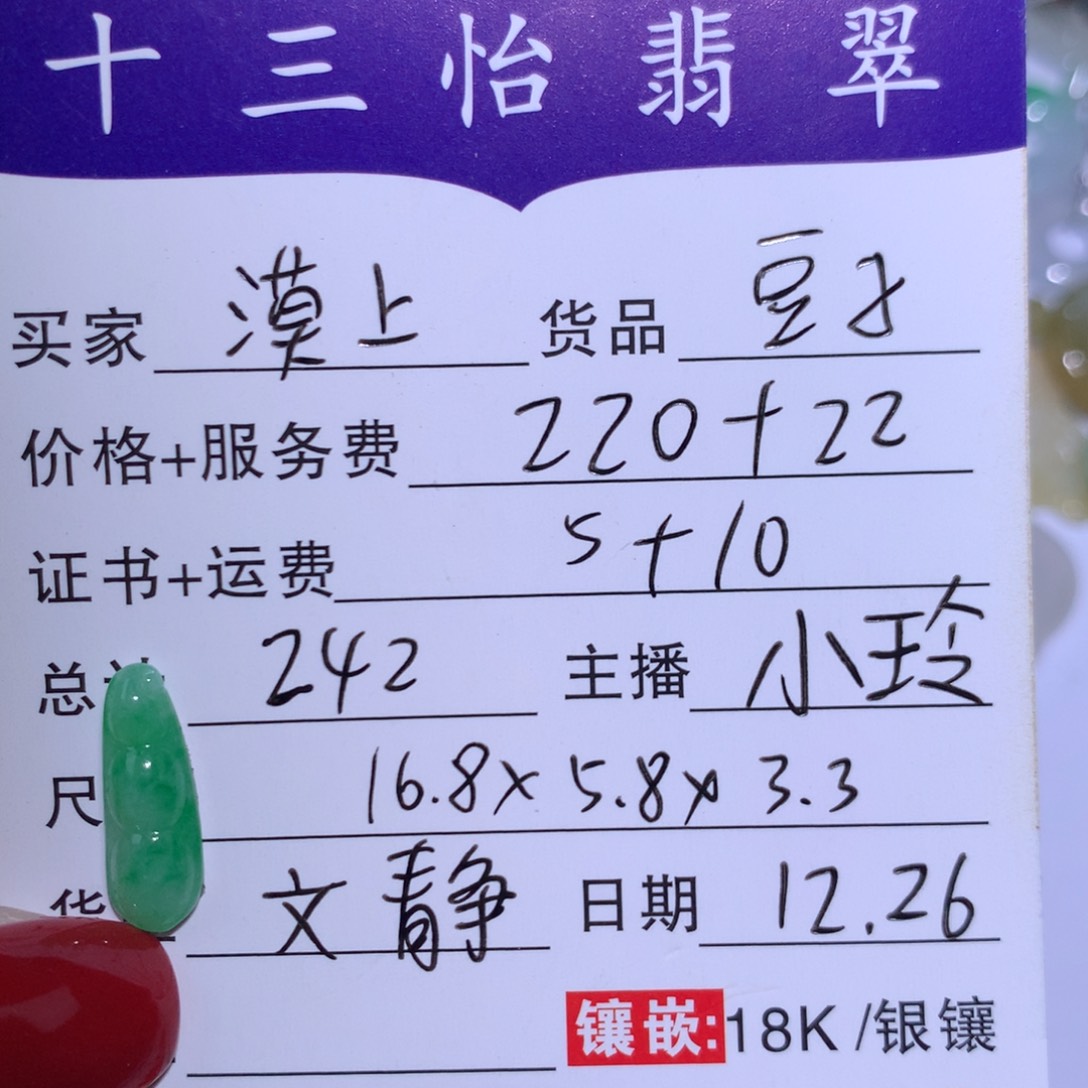 十三怡翡翠
买家 漠上 货品 豆子
价格+服务费 220+22
证书+运费 5+10
总 242 主播 小玲
尺 16.8x5.8x3.3
货 文静 日期 12.26
镶嵌:18K/银镶